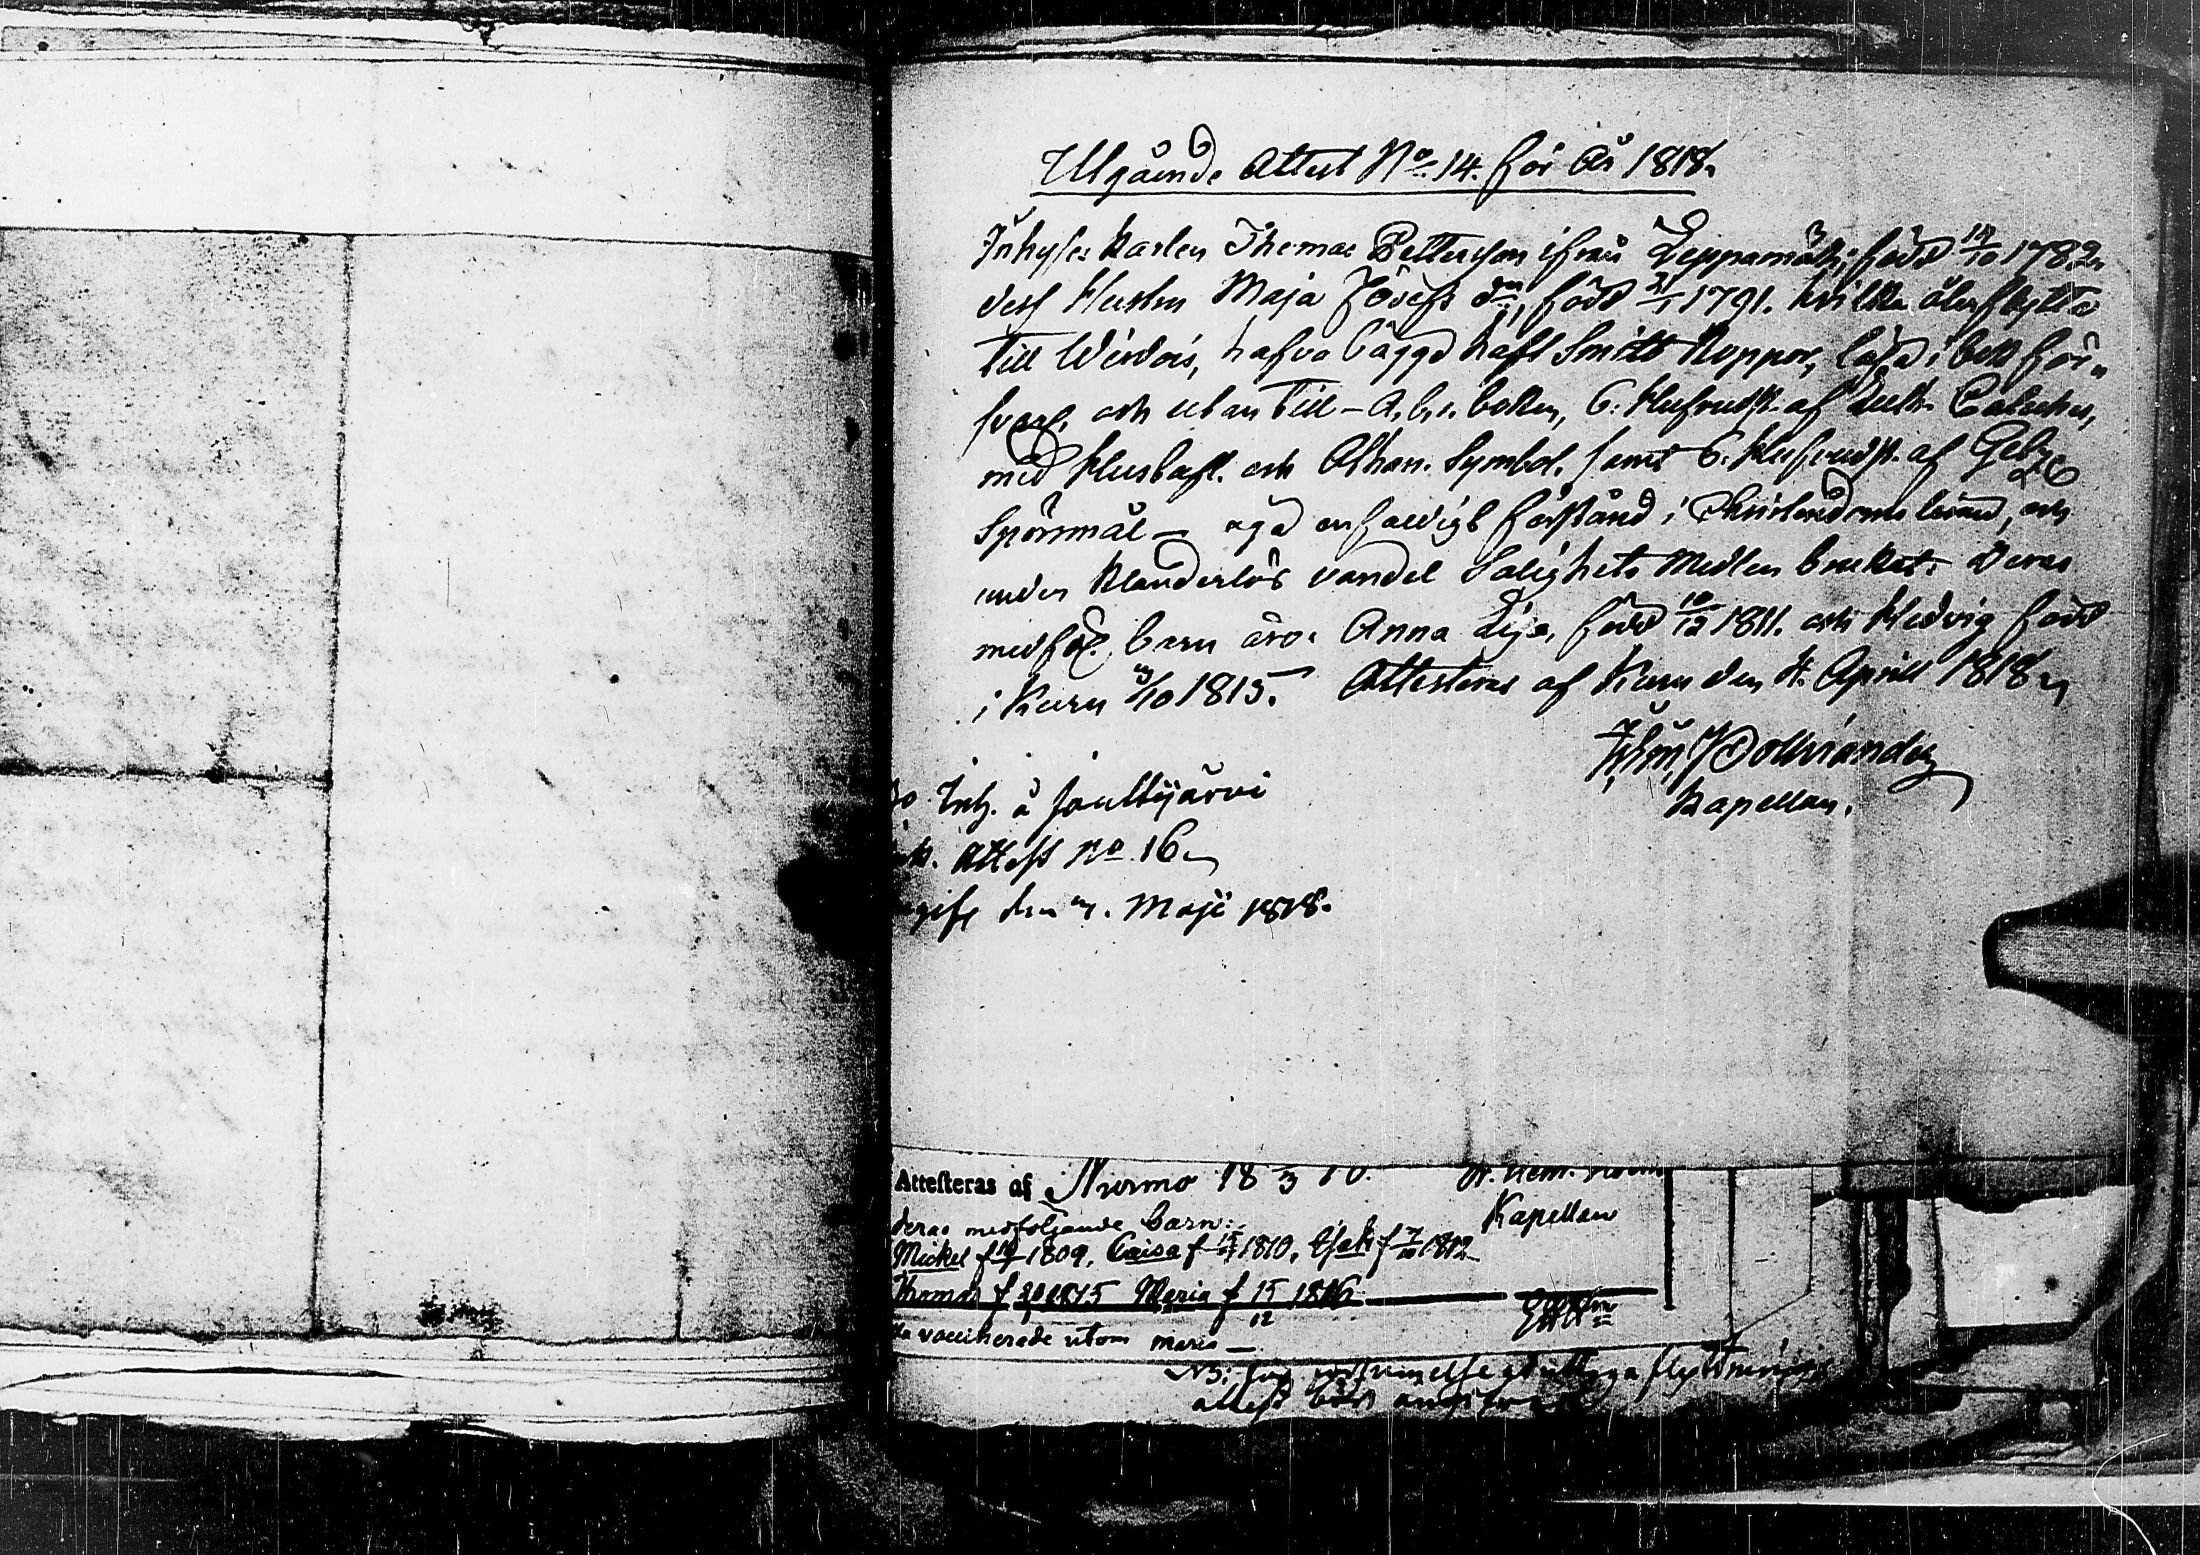 Utgående Attest No. 14. för År 1818.
Inhyses Karlen Thomas Pettersson ifrån Leppamäki, född 14/10 1782.
dess Hustru Maja Josefs dr, född 21/1 1791. hvilka återflytta
till Wirdois, hafva bägge haft Smitt Koppor, läsa i bok för-
svarl. och utan till - A.b.c. boken, 6. Hufvudst. af Luth. Catechis,
med Hustafl. och Athan. Symbol. samt 6. Hufvudst. af Gel
Spörsmål - äga enfaldigt förstånd i Christendoms läran, och
under klanderlös vandel Salighets Medlen brukat. Deras
medfölj. barn äro: Anna Lisa, född 10/12 1811. och Hedvig född
i Kuru 3/10 1815. Attesteras af Kuru den 4. April 1818
Kapellan.
Inh. å Jaulijärvi
Attest No 16
den Maji 1818.
Attesteras af Nurmo 18 3 10.
Kapellan
deras medföljande barn:
Mickel f 1809, Caisa f 1810, Esak f 7/10 1812
Thomas f 1815 Maria f 15/12 1816
vaccinerade utom Maria -
NB:
attest bör